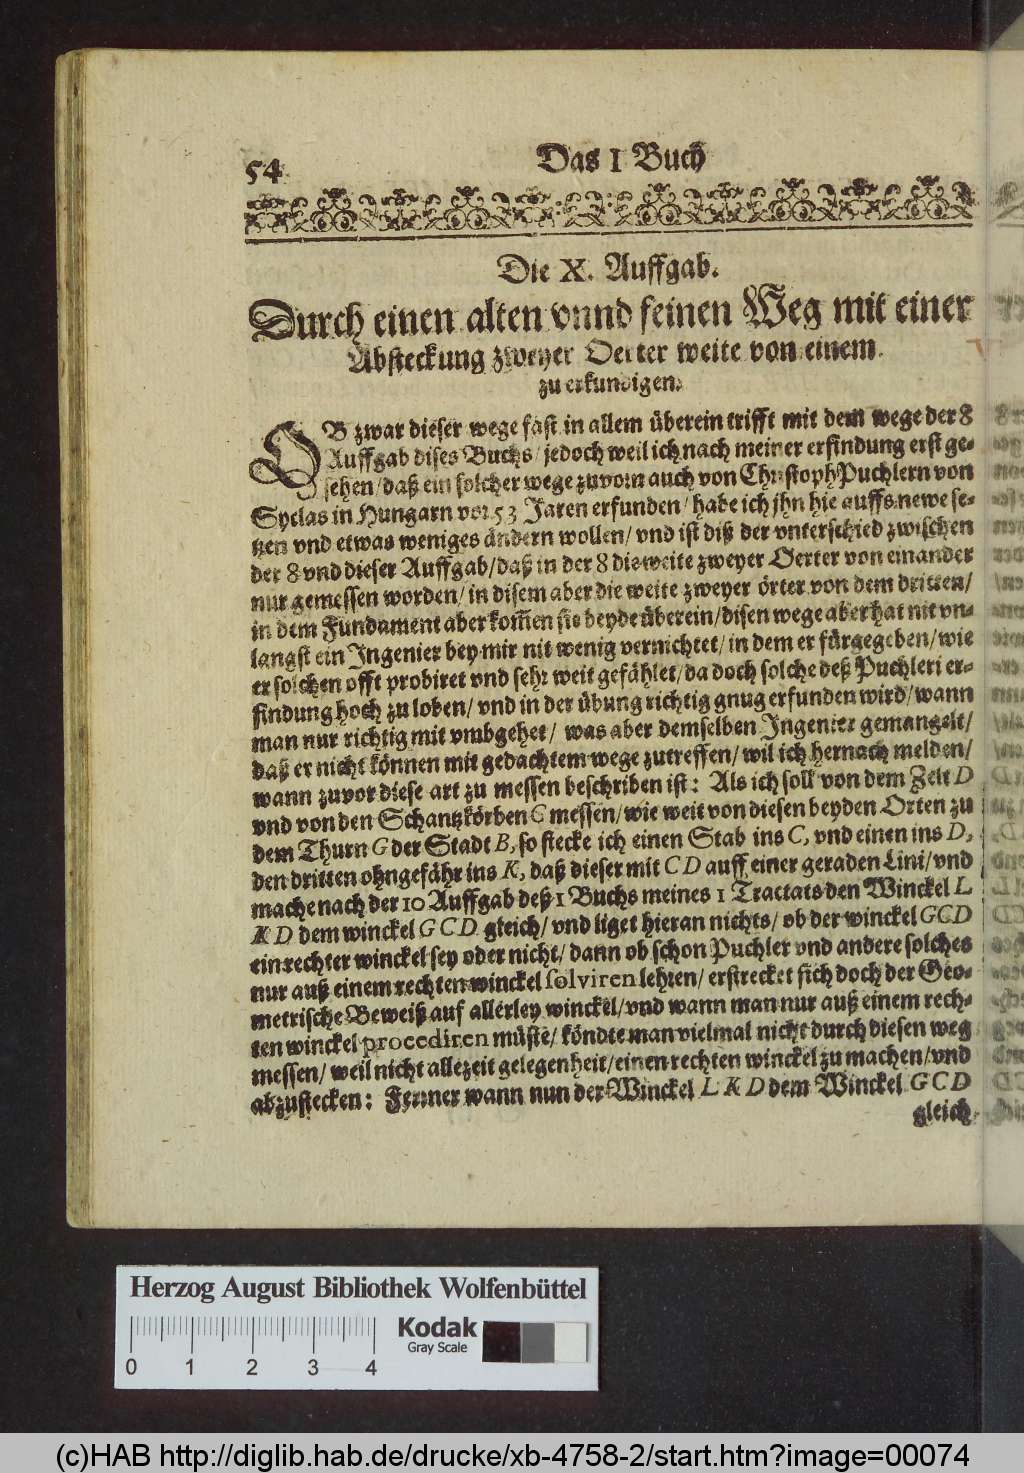 54
Das I Buch
Die X. Auffgab.
Durch einen alten vnnd feinen Weg mit einer
Absteckung zweyer Oerter weite von einem
zu erkundigen.
OB zwar dieser wege fast in allem überein trifft mit dem wege der 8
Auffgab dises Buchs/ jedoch weil ich nach meiner erfindung erst ge-
sehen/ daß ein solcher wege zuvorn auch von Christoph Puchlern von
Syclas in Hungarn vor 53 Jaren erfunden/ habe ich jhn hie auffs newe se-
tzen vnd etwas weniges ändern wollen/ vnd ist diß der vnterschied zwischen
der 8 vnd dieser Auffgab/ daß in der 8 die weite zweyer Oerter von einander
nur gemessen worden/ in disem aber die weite zweyer örter von dem dritten/
in dem Fundament aber kom̃en sie beyde überein/ disen wege aber hat nit vn-
langst ein Ingenier bey mir nit wenig vernichtet/ in dem er fürgegeben/ wie
er solchen offt probiret vnd sehr weit gefählet/ da doch solche deß Puchleri er-
findung hoch zu loben/ vnd in der übung richtig gnug erfunden wird/ wann
man nur richtig mit vmbgehet/ was aber demselben Ingenier gemangelt/
daß er nicht können mit gedachtem wege zutreffen/ wil ich hernach melden/
wann zuvor diese art zu messen beschriben ist: Als ich soll von dem Zelt D
vnd von den Schantzkörben C messen/ wie weit von diesen beyden Orten zu
dem Thurn G der Stadt B, so stecke ich einen Stab ins C, vnd einen ins D,
den dritten ohngefähr ins K, daß dieser mit C D auff einer geraden Lini/ vnd
mache nach der 10 Auffgab deß 1 Buchs meines 1 Tractats den Winckel L
K D dem winckel G C D gleich/ vnd liget hieran nichts/ ob der winckel GCD
ein rechter winckel sey oder nicht/ dann ob schon Puchler vnd andere solches
nur auß einem rechten winckel solviren lehren/ erstrecket sich doch der Geo-
metrische Beweiß auf allerley winckel/ vnd wann man nur auß einem rech-
ten winckel procediren müste/ köndte man vielmal nicht durch diesen weg
messen/ weil nicht allezeit gelegenheit/ einen rechten winckel zu machen/ vnd
abzustecken: Ferrner wann nun der Winckel L K D dem Winckel G C D
gleich
Herzog August Bibliothek Wolfenbüttel
Kodak
Gray Scale
0 1 2 3 4
(c)HAB http://diglib.hab.de/drucke/xb-4758-2/start.htm?image=00074